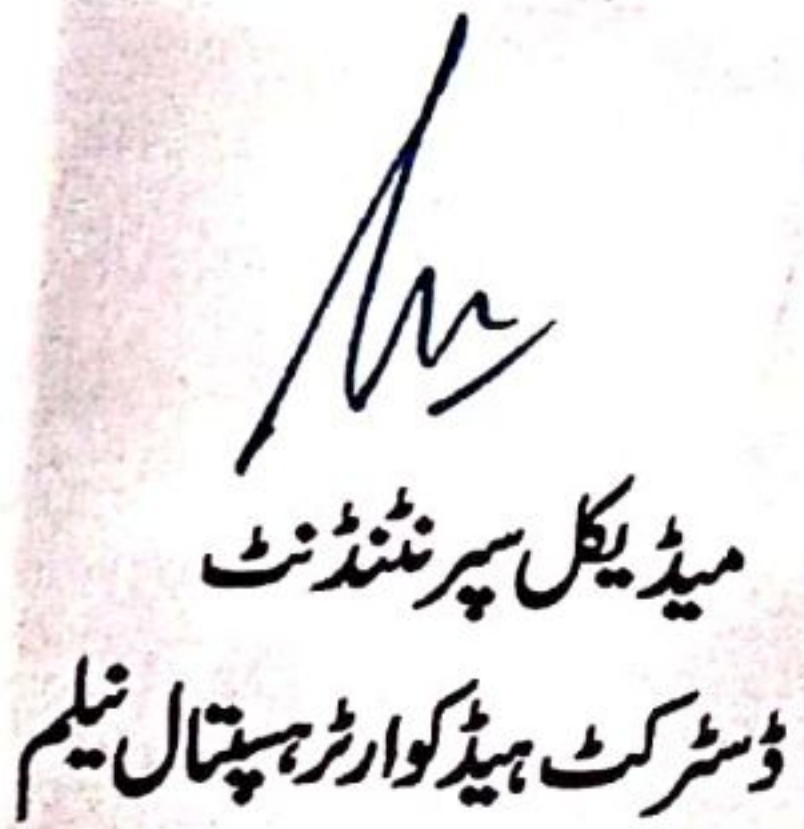 میڈیکل سپرنٹنڈنٹ
ڈسٹرکٹ ہیڈکوارٹر ہسپتال نیلم